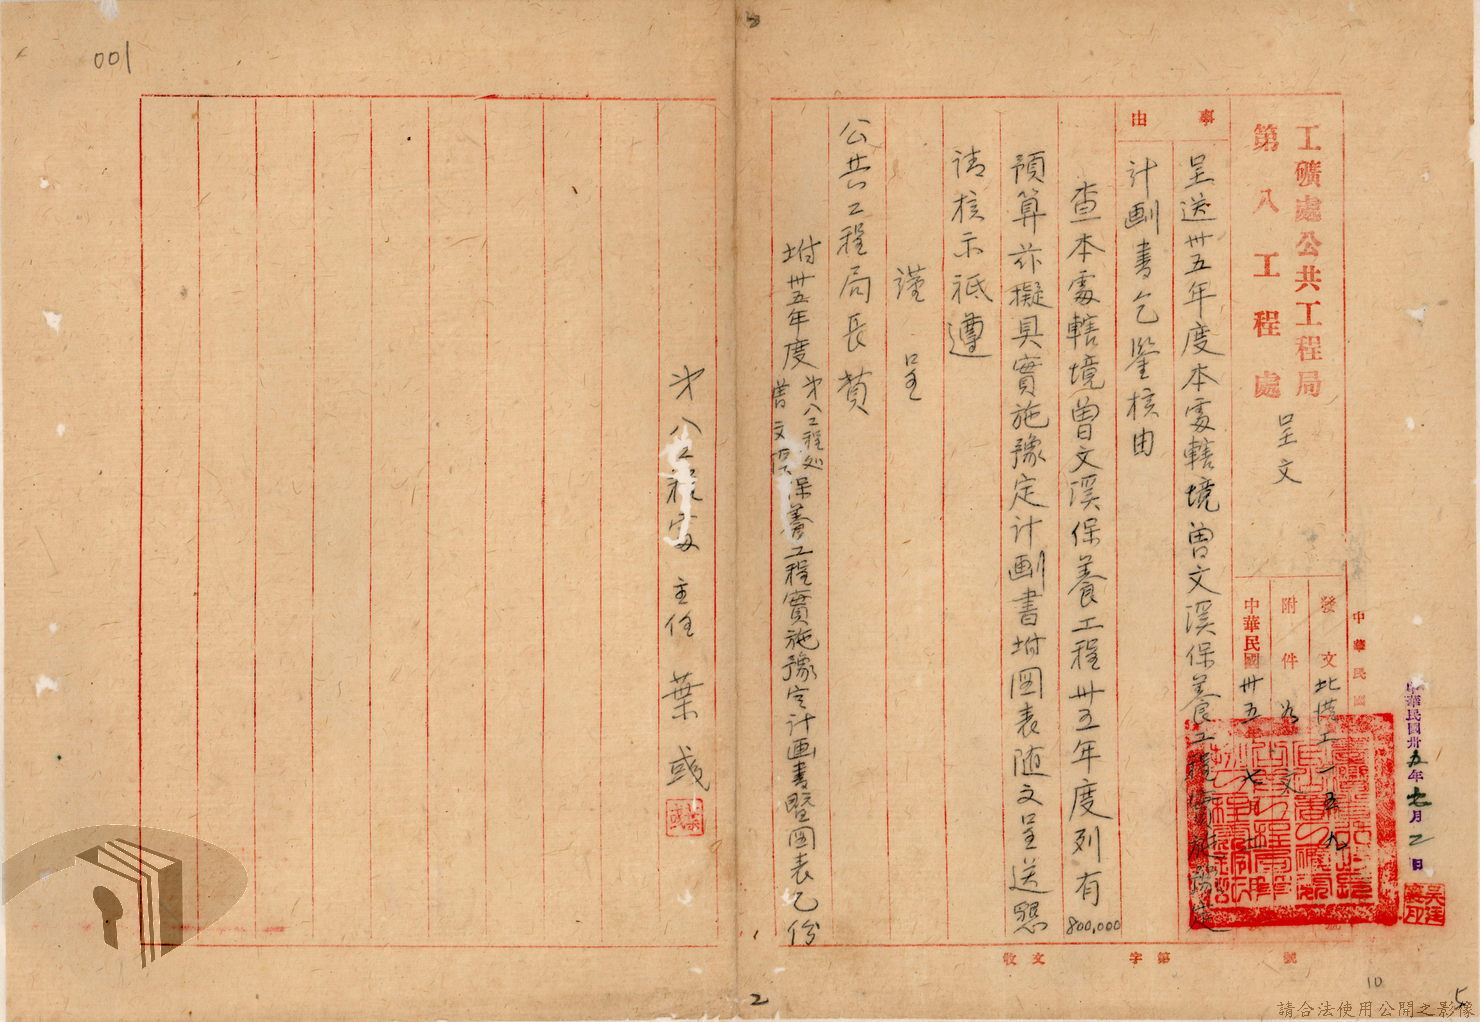 001
工礦處公共工程局
第八工程處
呈文
發文北港工一五九號
附件如文
中華民國卅五年七月
中華民國
中華民國卅五年七月2日
事由
呈送卅五年度本處轄境曾文溪保養工程實施豫定
計劃書乞鑒核由
查本處轄境曾文溪保養工程卅五年度列有800,000
預算茲擬具實施豫定計劃書坿圖表随文呈送懇
請核示祗遵
謹呈
公共工程局長費
坿卅五年度第八工程処曾文溪保養工程實施豫定計画書暨圖表乙份
第八工程處主任葉彧
收文字第號
2
10
5
請合法使用公開之影像